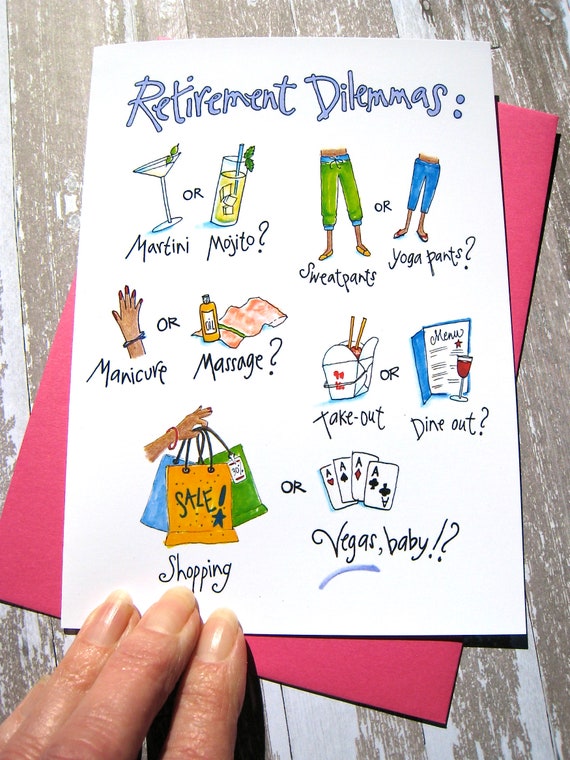 Retirement Dilemmas:
OR
Martini Mojito?
OR
Sweatpants Yoga pants?
OR
Oil
Manicure Massage?
Menu
OR
Take-out Dine out?
SALE!
OR
Shopping Vegas, baby!?
A A A A